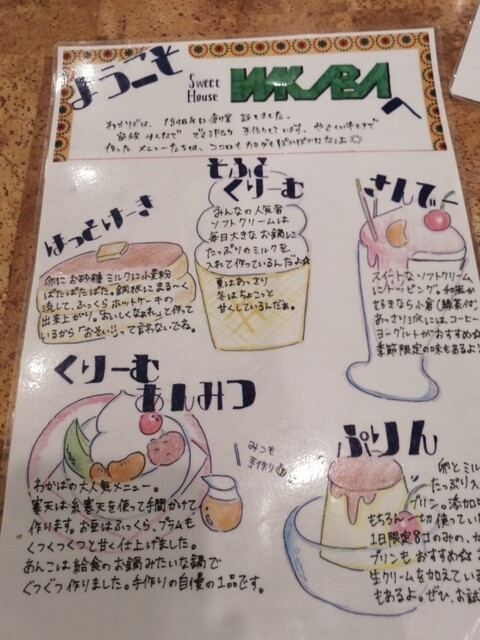 ようこそ
Sweet
House
WAKABA
へ
わかばは、1948年に創業致しました。
作ったメニューたちは、ココロもカラダもぽかぽかになるよ
ほっとけーき
卵にお砂糖ミルクに小麦粉
ぱたぱたぱた。銅板にまる〜く
流して、ふっくらホットケーキの
出来上がり。おいしくなぁれ♪って作って
いるから「おそい!!」って言わないでね。
そふと
くりーむ
みんなの人気者
ソフトクリームは
毎日大きなお鍋に
たっぷりのミルクを
入れて作っているんだよ☆
夏はあっさり
冬はちょこっと
甘くしているんだぁ。
さんでー
スイートなソフトクリーム
にトッピング。和風が
好きなら小倉(緑茶付)
あっさり派には、コーヒー
ヨーグルトがおすすめ☆
季節限定の味もあるよ!
くりーむ
あんみつ
みつも
手作り
わかばの大人気メニュー。
寒天は糸寒天を使って手間かけて
作ります。お豆はふっくら、プラムも
くつくつくつと甘く仕上げました。
あんこは給食のお鍋みたいな鍋で
ぐつぐつ作りました。手作りの自慢の1品です。
ぷりん
卵とミル
たっぷり入
プリン。添加物
もちろん一切使ってい
1日限定8コのみの、か
プリンもおすすめ☆
生クリームを加えている
もあるよ。ぜひ、お試